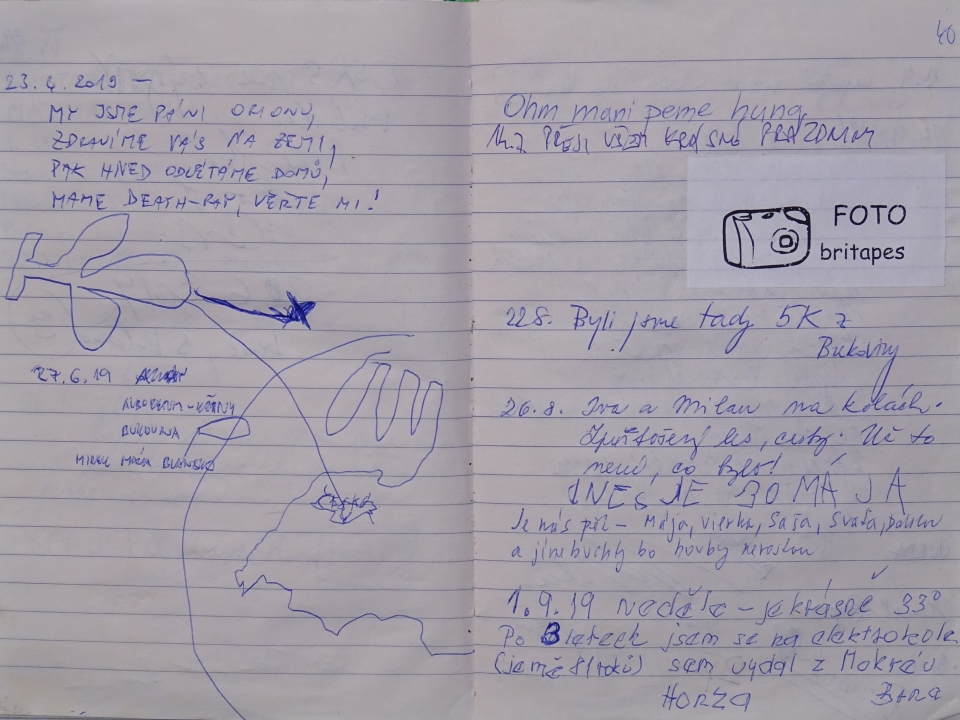 23.4.2019 —
MY JSME PÁNI ORIONU,
ZDRAVÍME VÁS NA ZEMI,
PAK HNED ODLÉTÁME DOMŮ,
MAME DEATH-RAY, VĚŘTE MI!
27.6.19
BUKOVINA
MIREK BLANSKO
ČESKO
40
Ohm mani peme hung
14.7 PŘEJI VŠEM KRÁSNÉ PRÁZDNINY
FOTO
britapes
22.8. Byli jsme tady 5K z
Bukoviny
26.8. Iva a Milan na kolách.
les, cesty. Už to
není, co bylo!
DNES JE 30 MÁJA
Je nás pět – Mája, Vierka, Saša, Svaťa,
a jíme buchty bo houby nerostou
1.9.19 neděle – je krásně 33°
Po 3 letech jsem se na elektrokole
(je mě 81 roků) sam vydal z Mokré u
HORZA